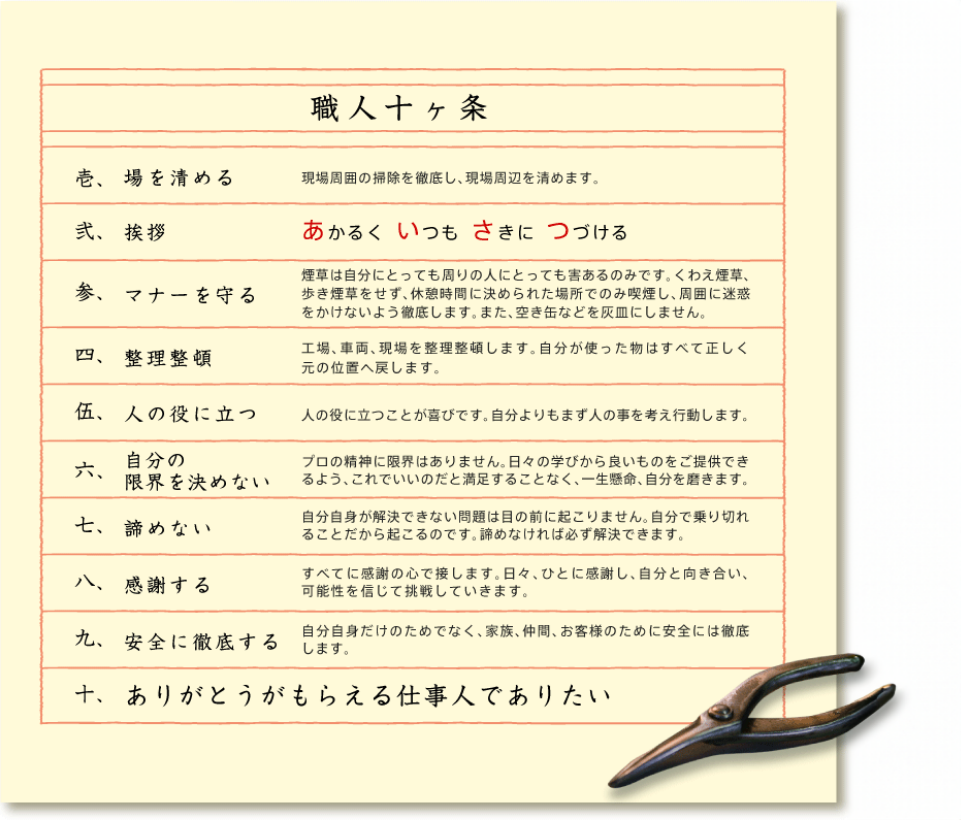 職人十ヶ条
壱、 場を清める 現場周囲の掃除を徹底し、現場周辺を清めます。
弐、 挨拶 あかるく いつも さきに つづける
参、 マナーを守る
煙草は自分にとっても周りの人にとっても害あるのみです。くわえ煙草、
歩き煙草をせず、休憩時間に決められた場所でのみ喫煙し、周囲に迷惑
をかけないよう徹底します。また、空き缶などを灰皿にしません。
四、 整理整頓
工場、車両、現場を整理整頓します。自分が使った物はすべて正しく
元の位置へ戻します。
伍、 人の役に立つ 人の役に立つことが喜びです。自分よりもまず人の事を考え行動します。
六、 自分の
限界を決めない
プロの精神に限界はありません。日々の学びから良いものをご提供でき
るよう、これでいいのだと満足することなく、一生懸命、自分を磨きます。
七、 諦めない
自分自身が解決できない問題は目の前に起こりません。自分で乗り切れ
ることだから起こるのです。諦めなければ必ず解決できます。
八、 感謝する
すべてに感謝の心で接します。日々、ひとに感謝し、自分と向き合い、
可能性を信じて挑戦していきます。
九、 安全に徹底する
自分自身だけのためでなく、家族、仲間、お客様のために安全には徹底
します。
十、 ありがとうがもらえる仕事人でありたい